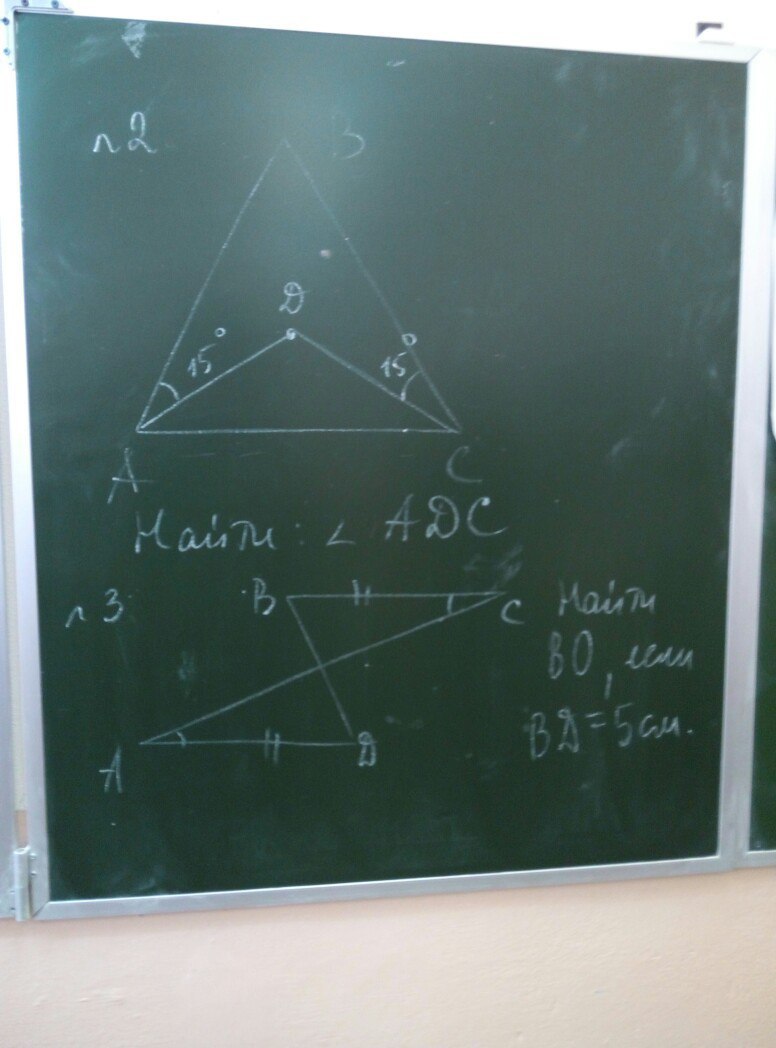 n2
B
D
15° 15°
A C
Найти: ∠ ADC
n3
B C
A D
Найти
BO, если
BD = 5 см.